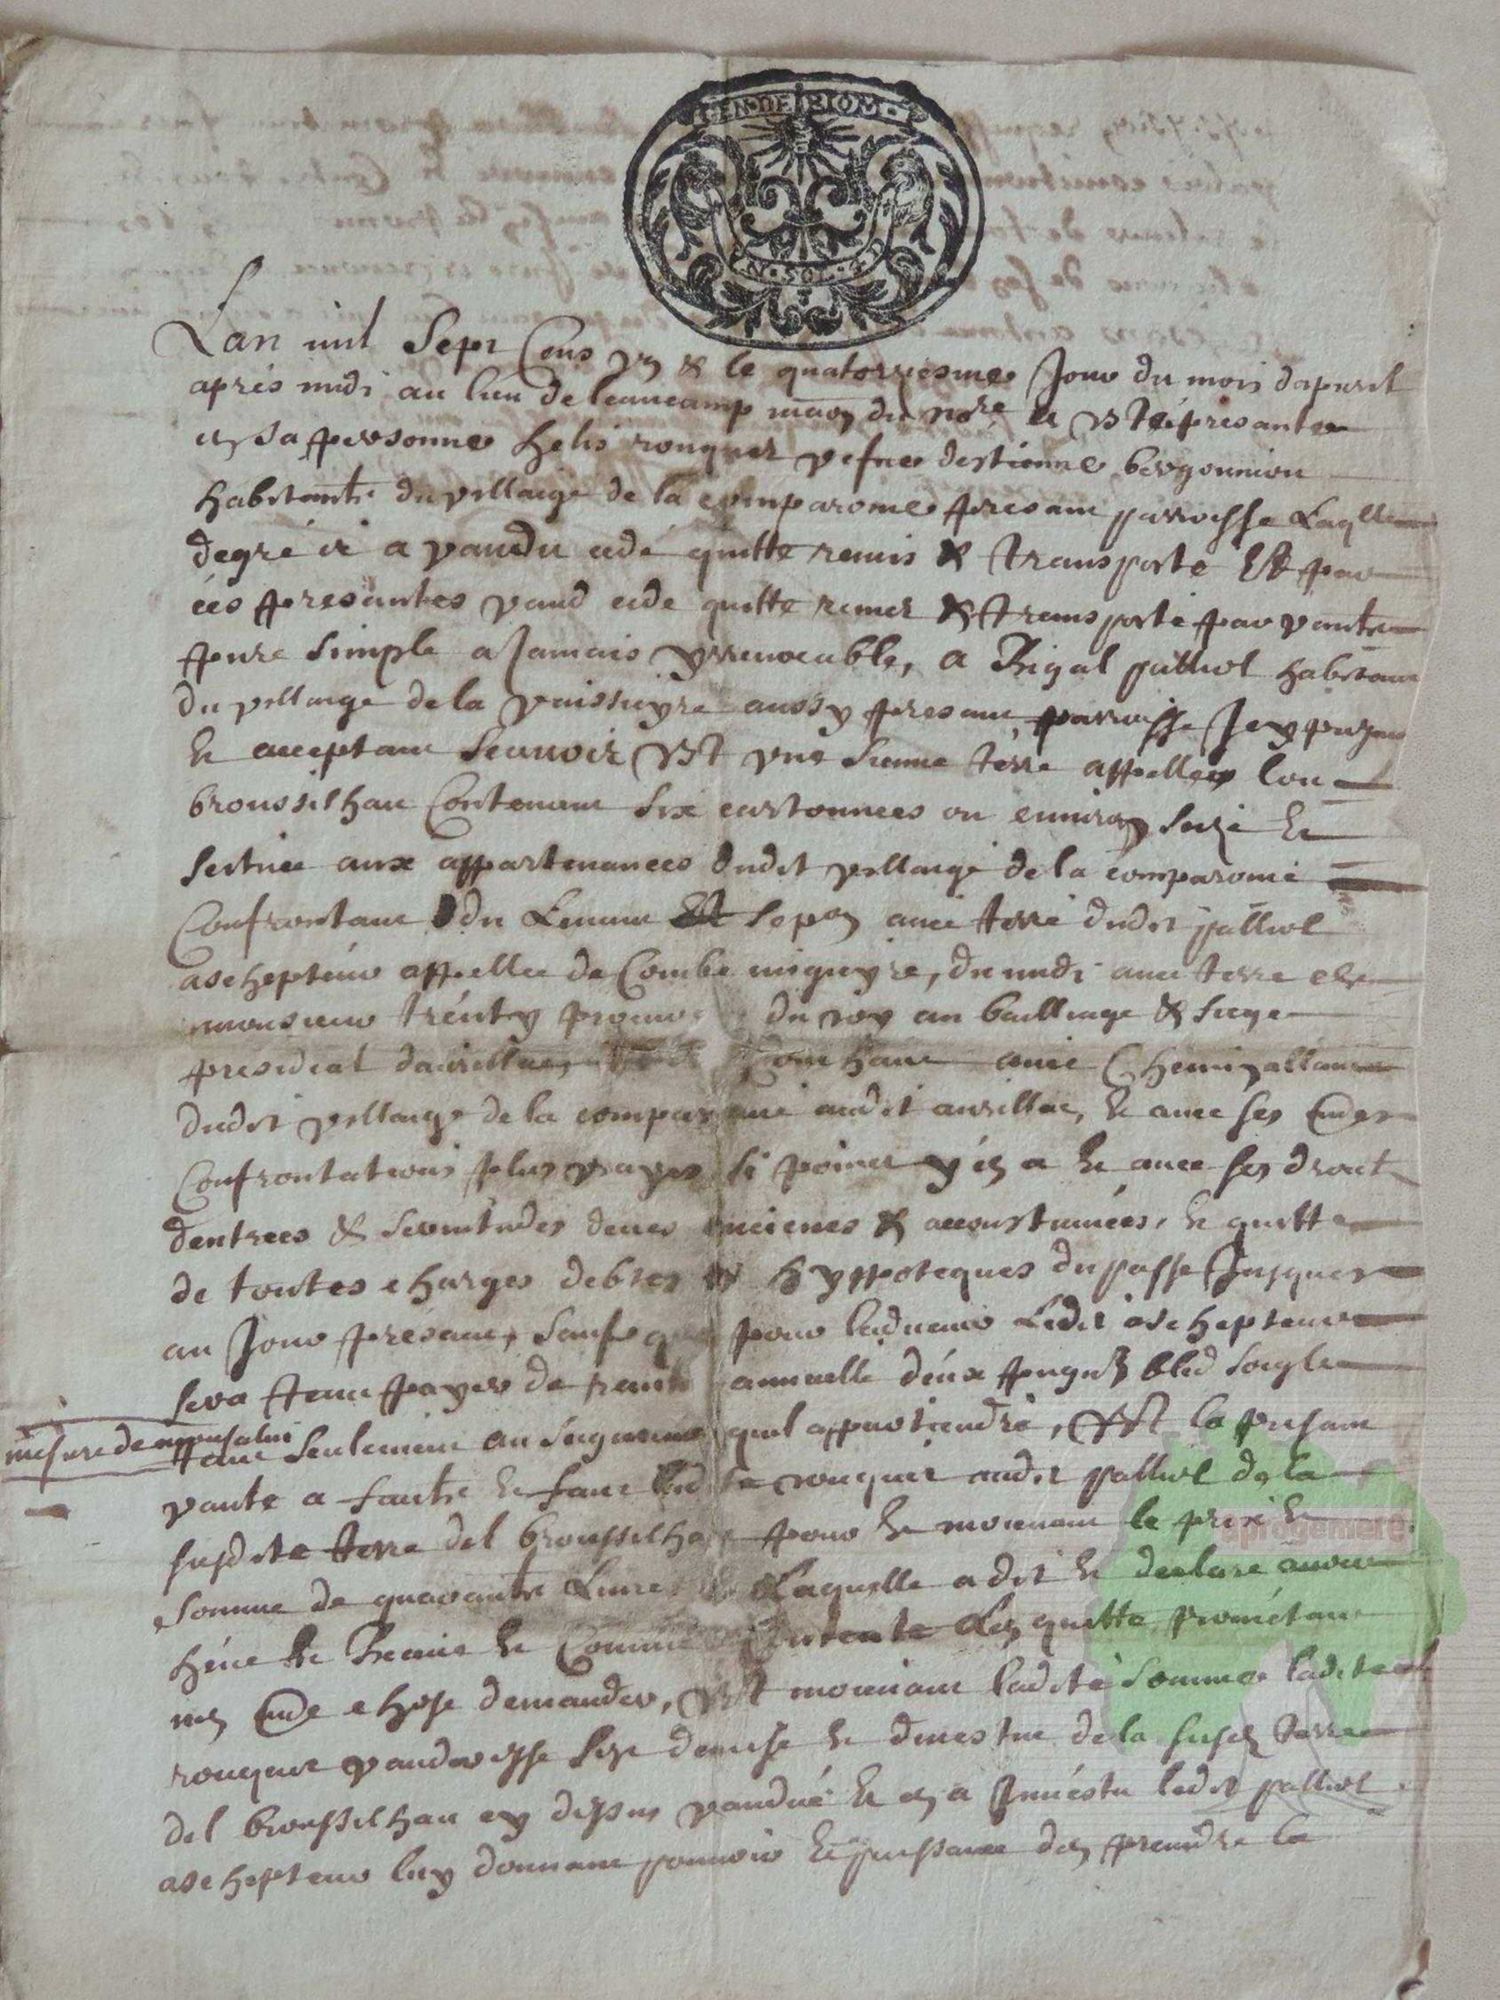 GEN·DE·RIOM·
N·SOL·4·D
Lan mil Sept Cens un & le quatorziesme Jour du mois dapvril
aprés midi au lieu de leaucamp maon du nore a esté présante
en sa personne helis rouquet vefue destienne bergouniou
habitante du villaige de la comparonie presant parroisse Laqlle
de gré ir a vandu cedé quitte remis & transporte Et par
ces presantes vand cede quitte remet & transporte par vante
pure simple a Jamais yrreuocable, a Rigal palhiol habitant
du villaige de la vaissieyre aussy presant parroisse Jcy presant
et acceptant scauoir est une sienne terre appellee lou
broussilhau Contenant six cartonnees ou enuiron size et
scituee aux appartenances dudit villaige de la comparonie
Confrontant du Leuant sopon auec terre dudit palhiol
achepteur appellee de Combe migieyre, du midi auec terre de
monsieur trénty procur du roy au bailliage & siege
presidial daurillac, Couchant auec Chemin allant
dudit villaige de la comparonie audit aurillac, et auec ses autres
Confrontations plus vrayes si point y en a et auec ses droits
dentrees & seruitudes deues encienes & accoustumées, et quitte
de toutes charges debtes & hyppoteques du passe Jusques
au Jour présant, sauf que pour laduenir Ledit achepteur
sera tenu payer de rante annuelle deux pugn bled soigle
mesure de monsalui
tant seulement au seigneur quil appartiendra, Est la presant
vante a faicte et faict lad rouquet audit palhiol de la
susdite terre del broussilhau pour et moienant le prix et
somme de quarante Liures Laquelle a dit et declare auoir
héue et Receue et Comme Contente len quitte prométant
ney autre chose demander, Est moienant ladite somme ladite
rouquet vanderesse sest demise et deuestue de la susd terre
del broussilhau cy dessus vandué et en a Jnuéstu ledit palhiol
achepteur luy donnant pouuoir et puissance den prendre la
aprogemere